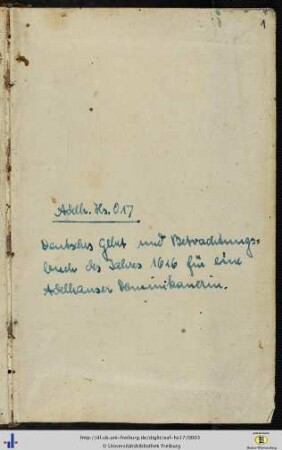 1
Adelh. Hs. 017
Deutsches Gebet und Betrachtungs-
buch des Jahres 1616 für eine
Adelhauser Dominikanerin.
http://dl.ub.uni-freiburg.de/diglit/
© Universitätsbibliothek Freiburg